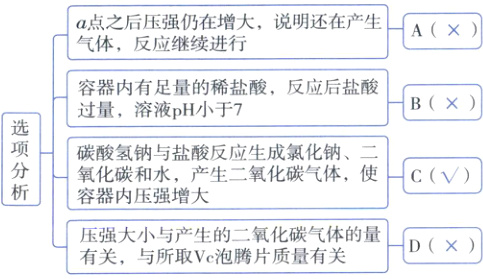 选项分析
a点之后压强仍在增大，说明还在产生
气体，反应继续进行
A（×）
容器内有足量的稀盐酸，反应后盐酸
过量，溶液pH小于7
B（×）
碳酸氢钠与盐酸反应生成氯化钠、二
氧化碳和水，产生二氧化碳气体，使
容器内压强增大
C（√）
压强大小与产生的二氧化碳气体的量
有关，与所取Vc泡腾片质量有关
D（×）